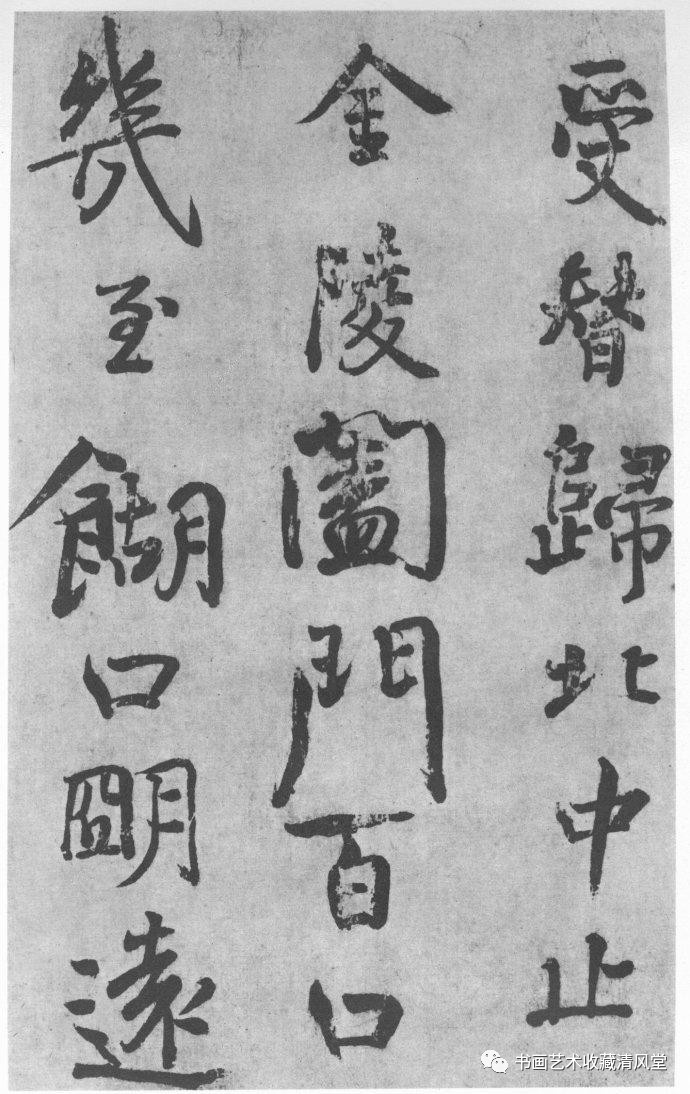 受替歸北中止
金陵闔門百口
幾至餬口明遠
书画艺术收藏清风堂